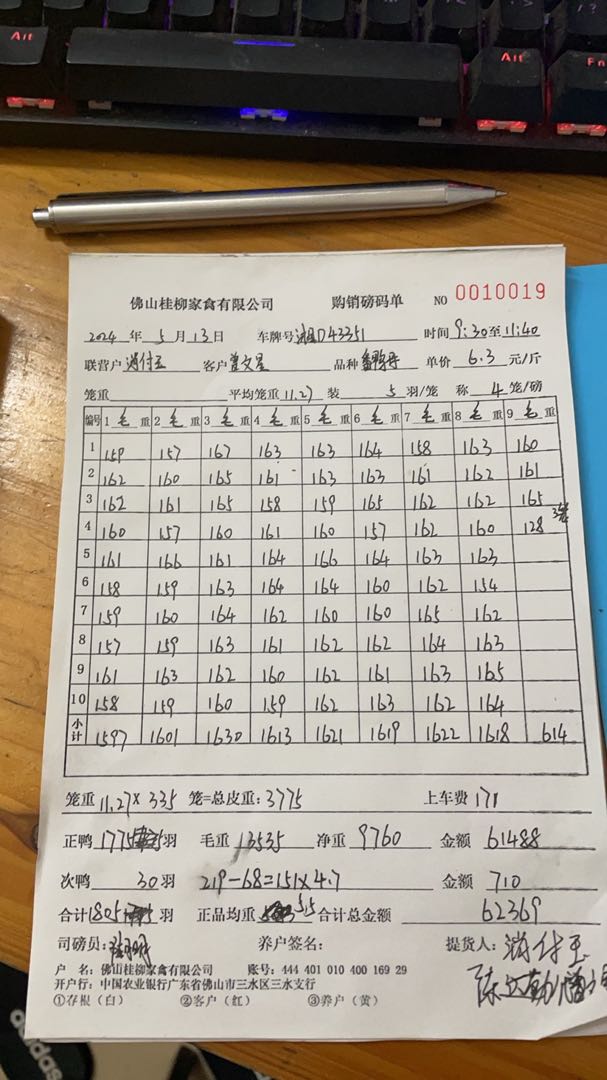 佛山桂柳家禽有限公司 购销磅码单 NO 0010019
2024 年 5 月 13 日 车牌号 D43351 时间 9:30至11:40
联营户 客户 曾文星 品种 单价 6.3 元/斤
笼重 平均笼重 11.27 装 5 羽/笼 称 4 笼/磅
编号 1 毛 重 2 毛 重 3 毛 重 4 毛 重 5 毛 重 6 毛 重 7 毛 重 8 毛 重 9 毛 重
1 159 157 167 163 163 164 158 163 160
2 162 160 165 161 163 163 161 162 161
3 162 161 165 158 159 165 162 162 165
4 160 157 160 161 160 157 162 160 128 3笼
5 161 166 161 164 166 164 163 163
6 158 159 163 164 164 160 162 154
7 159 160 164 162 160 160 165 162
8 157 159 163 161 162 162 164 163
9 161 163 162 160 162 161 163 165
10 158 159 160 159 162 163 162 164
小计 1597 1601 1630 1613 1621 1619 1622 1618 614
笼重 11.27 × 335 笼=总皮重: 3775 上车费 171
正鸭 1775 羽 毛重 13535 净重 9760 金额 61488
次鸭 30 羽 219-68=151×4.7 金额 710
合计 1805 羽 正品均重 5.5 合计总金额 62369
司磅员: 养户签名: 提货人:
户 名: 佛山桂柳家禽有限公司 账号: 444 401 010 400 169 29
开户行: 中国农业银行广东省佛山市三水区三水支行
①存根（白） ②客户（红） ③养户（黄）
Alt
Alt
Fn
adidas